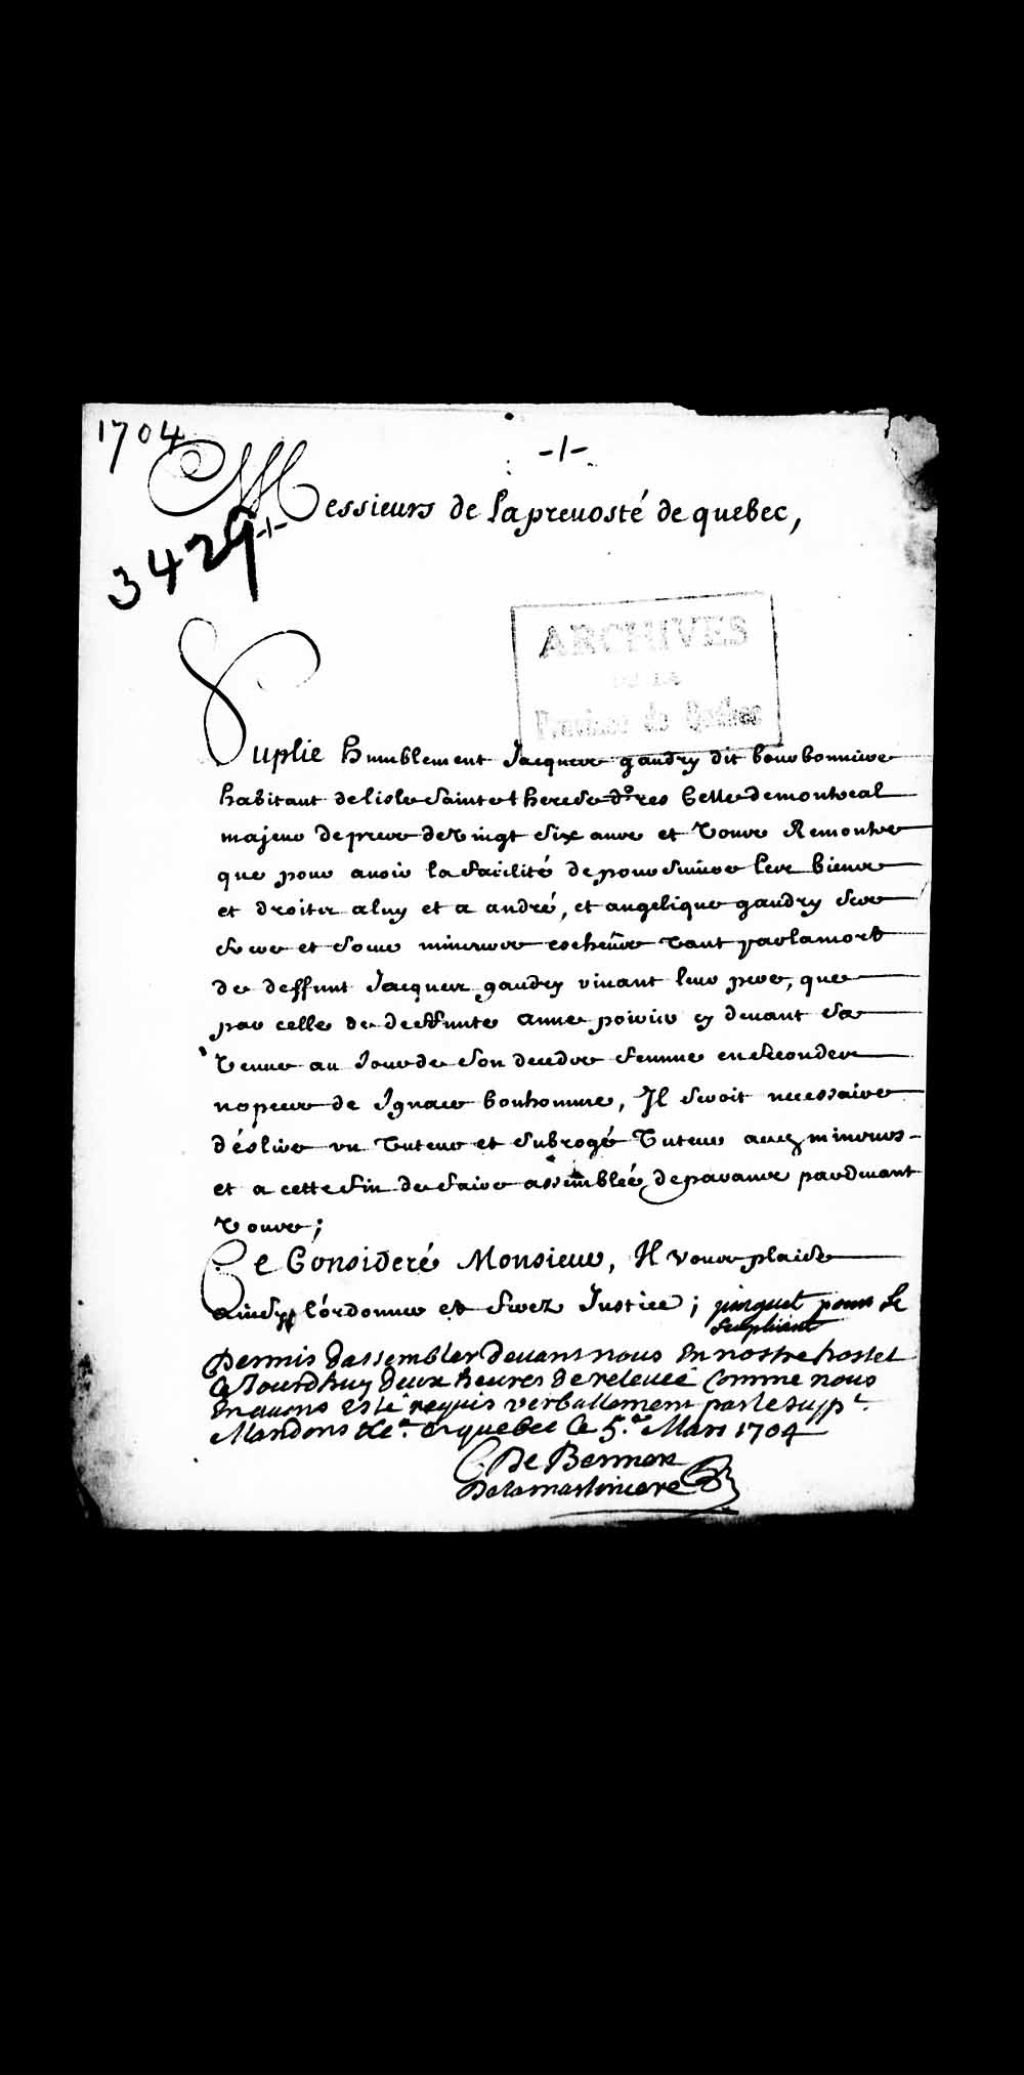 1704
-1-
Messieurs de la prevosté de quebec,
3429
-1-
ARCHIVES
DE LA
Province de Québec
Suplie humblement Jacques gaudry dit bourbonniere
habitant de lisle Sainte therese pres Celle de montreal
majeur de pres de vingt Six ans et vous Remontre
que pour avoir la facilité de poursuivre les biens
et droits a luy et a andré, et angelique gaudry ses
frere et soeur mineurs escheus tant par la mort
de deffunt Jacques gaudry vivant leur pere, que
par celle de deffunte anne poirier cy devant sa
veuve au Jour de son decedz femme en secondes
nopces de Ignace bonhomme, Il seroit necessaire
d'éslire un tuteur et subrogé tuteur ausd mineurs -
et a cette fin de faire assemblée de parans pardevant
vous;
Ce Consideré Monsieur, Il vous plaise
ainsy l'ordonner et ferez Justice; pour Le
supliant
Permis dassembler devant nous En nostre hostel
Ce Jourdhuy deux heures de relevée Comme nous
En avons esté requis verballement par le supt.
Mandons &c.a a quebec Le 5.e Mars 1704
C De Bermen
De la martiniere